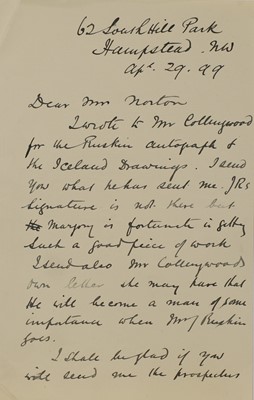 62 South Hill Park
Hampstead. NW
Apl. 29. 99
Dear Mrs Norton
I wrote to Mr Collingwood
for the Ruskin autograph &
the Iceland Drawings. I send
You what he has sent me. JRs
signature is not there but
Marjory is fortunate in getting
such a good piece of work
I send also Mr Collingwoods
own letter she may have that
He will become a man of some
importance when Mr Ruskin
goes.
I shall be glad if you
will send me the prospectus